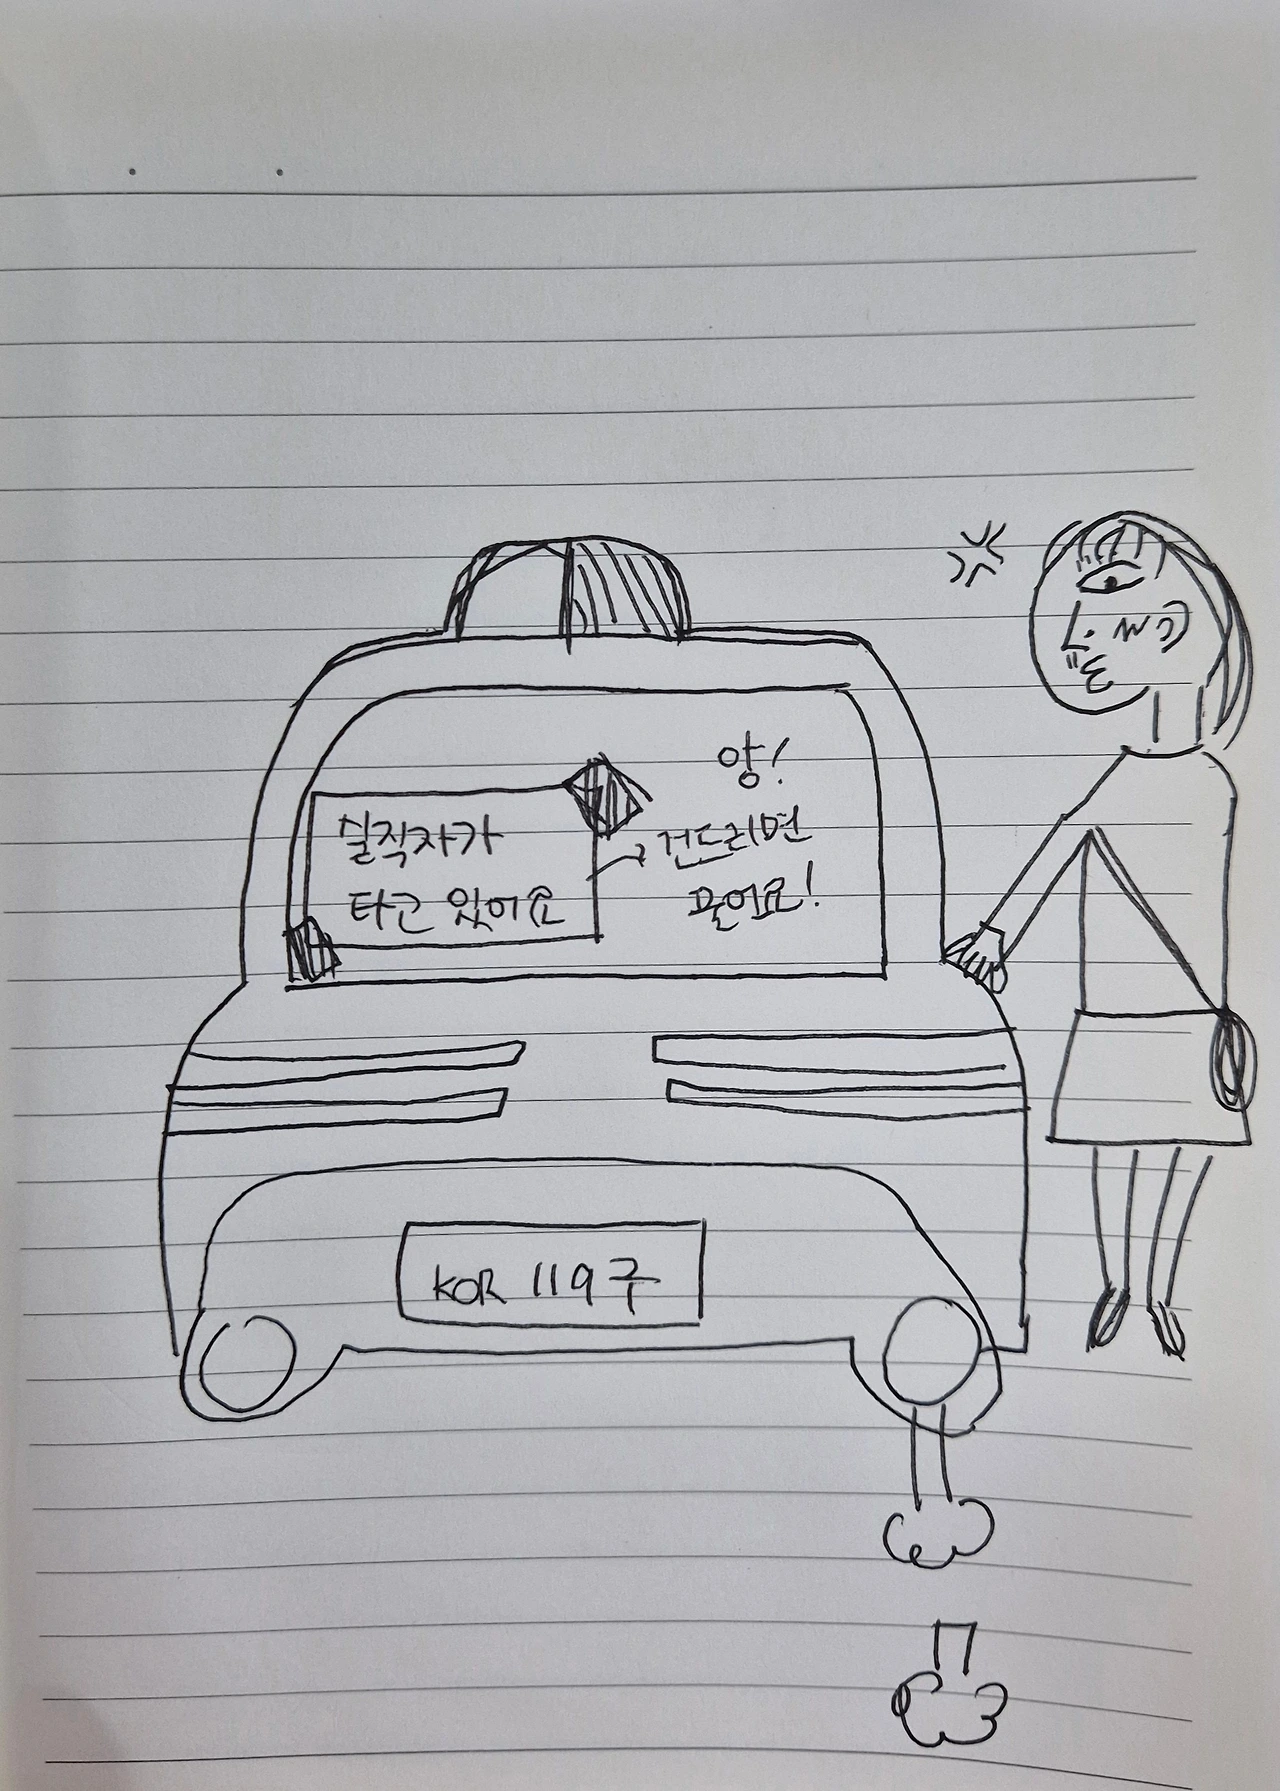 실직자가
타고 있어요
앙!
건드리면
물어요!
KOR 119구